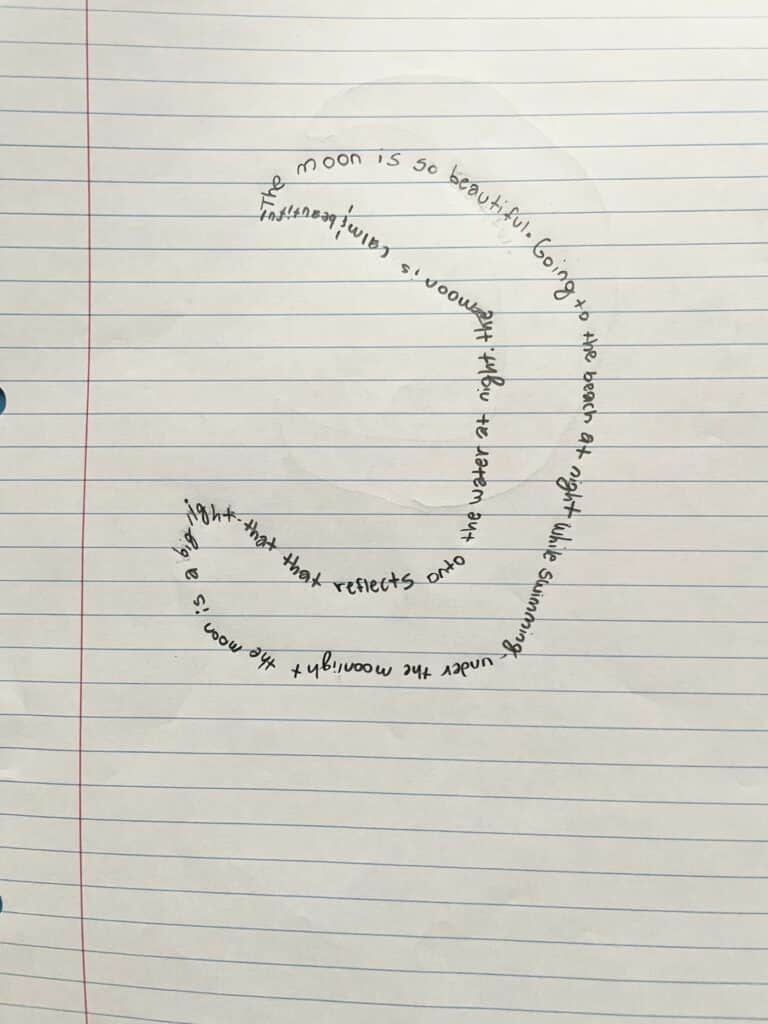 The moon is so beautiful. Going to the beach at night while swimming under the moonlight the moon is a big light that that reflects onto the water at night. the moon is calm & beautiful